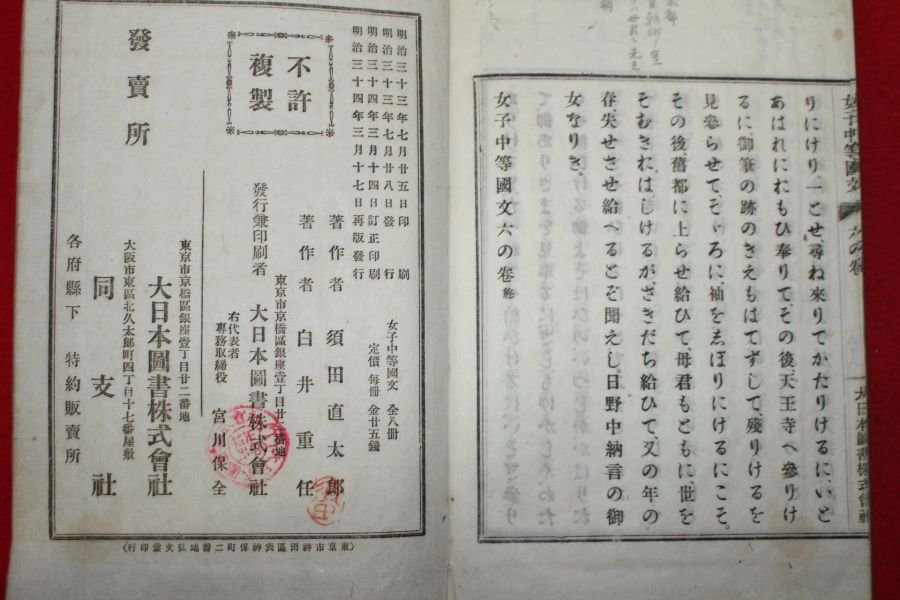 りにけり、一とせ、尋ね來りてかたりけるに、いと
あはれにおもひ奉りて、その後、天王寺へ參りけ
るに、御筆の跡のきえもはてずして、殘りけるを
見參らせて、そゞろに、袖をゑぼりにけるにこそ。
その後舊都に上らせ給ひて、母君もともに、世を
そむきおはしけるが、さきだち給ひて、又の年の
春失せさせ給へるとぞ聞えし。日野中納言の御
女なりき。
女子中等國文六の卷 終
女子中等國文
六の卷
大日本圖書株式會社
明治三十三年七月廿五日印刷
明治三十三年七月廿八日發行
明治三十四年三月十四日訂正印刷
明治三十四年三月十七日再版發行
不許
複製
女子中等國文 全八冊
定價 每冊 金廿五錢
著作者 須田直太郎
著作者 白井重任
東京市京橋區銀座壹丁目廿二番地
發行兼印刷者 大日本圖書株式會社
右代表者
專務取締役 宮川保全
發賣所
東京市京橋區銀座壹丁目廿二番地
大日本圖書株式會社
大阪市東區北久太郎町四丁目十七番屋敷
同支社
各府縣下 特約販賣所
(東京市神田區表神保町二番地弘文堂印行)